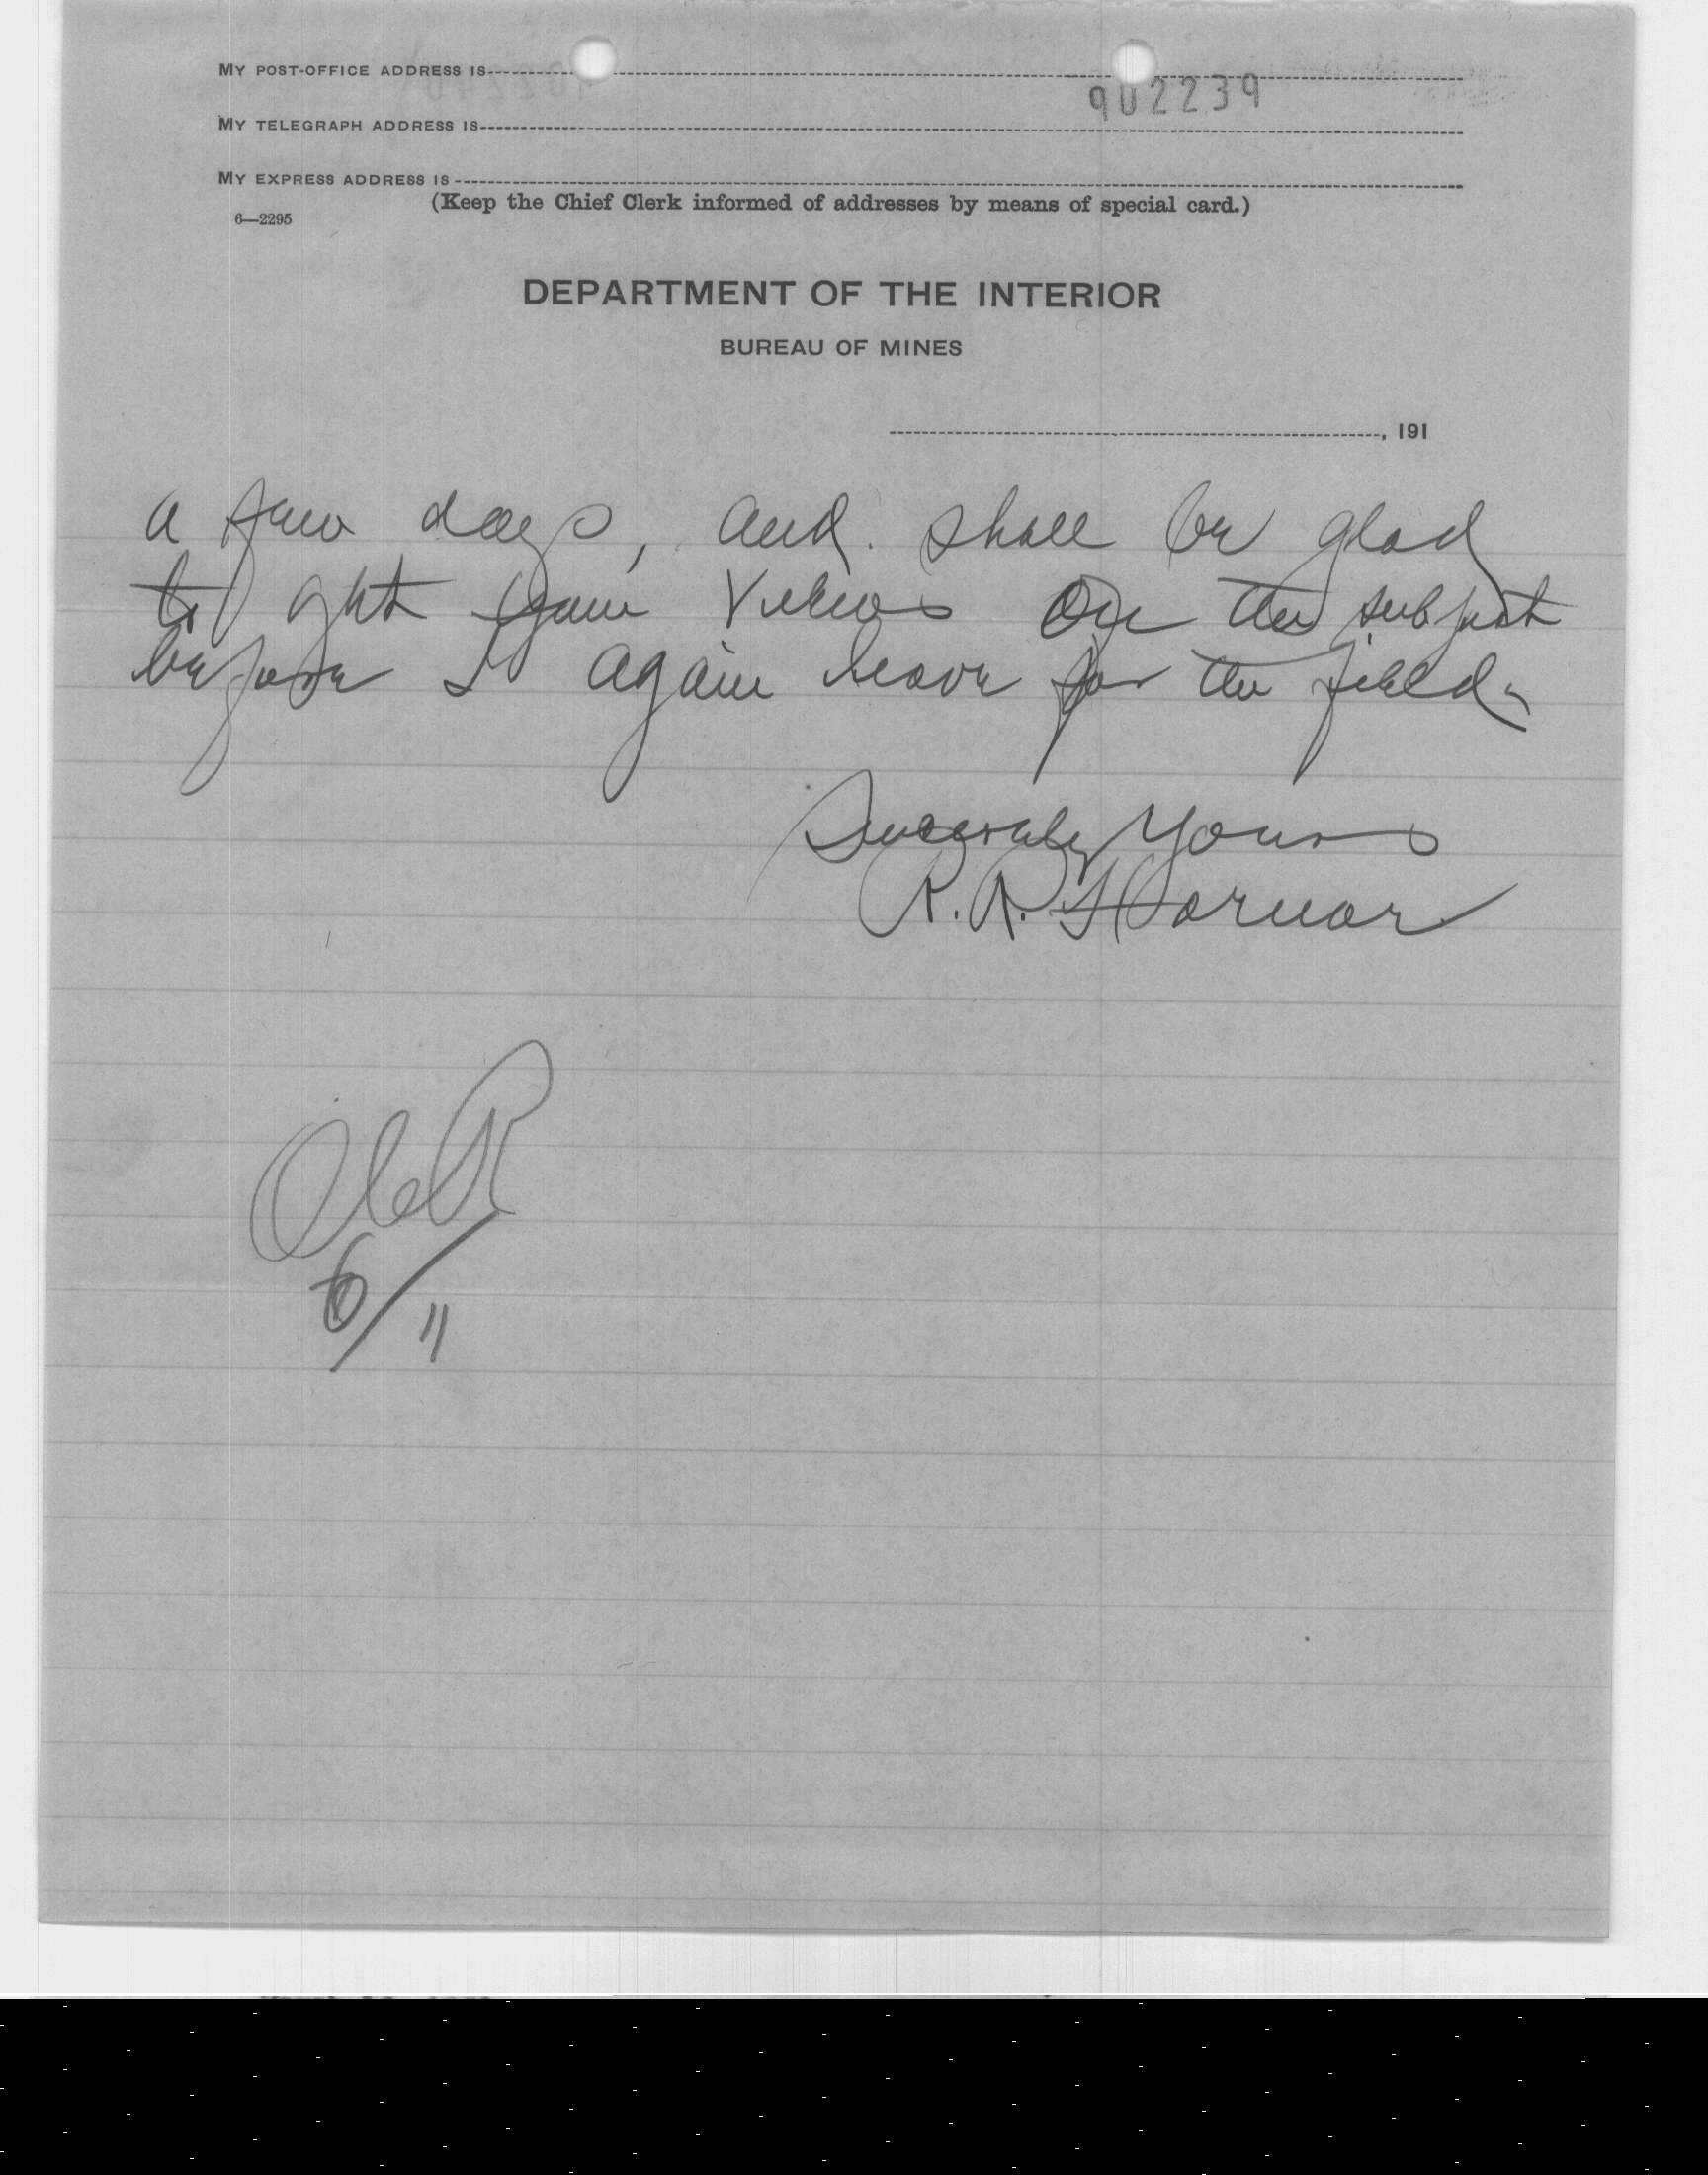 MY POST-OFFICE ADDRESS IS
902239
MY TELEGRAPH ADDRESS IS
MY EXPRESS ADDRESS IS
(Keep the Chief Clerk informed of addresses by means of special card.)
6—2295
DEPARTMENT OF THE INTERIOR
BUREAU OF MINES
, 191
a few days, and shall be glad
to get your views on the subject
before I again leave for the field.
Sincerely Yours
R. R. Hornor
6/11